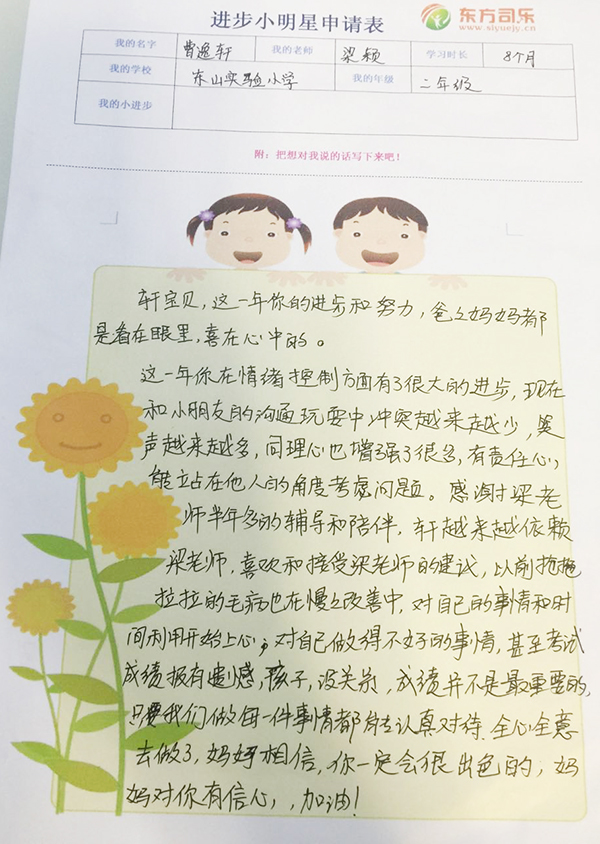 进步小明星申请表
东方司乐
www.siyuejy.cn
我的名字 曹逸轩 我的老师 梁颖 学习时长 8个月
我的学校 东山实验小学 我的年级 二年级
我的小进步
附：把想对我说的话写下来吧！
轩宝贝，这一年你的进步和努力，爸爸妈妈都
是看在眼里，喜在心中的。
这一年你在情绪控制方面有了很大的进步，现在
和小朋友的沟通玩耍中冲突越来越少，笑
声越来越多，同理心也增强了很多，有责任心，
能站在他人的角度考虑问题。感谢梁老
师半年多的辅导和陪伴，轩越来越依赖
梁老师，喜欢和接受梁老师的建议，以前拖拖
拉拉的毛病也在慢慢改善中，对自己的事情和时
间利用开始上心，对自己做得不好的事情，甚至考试
成绩报有遗憾，孩子，没关系，成绩并不是最重要的，
只要我们做每一件事情都能认真对待．全心全意
去做了，妈妈相信，你一定会很出色的；妈
妈对你有信心，，加油！